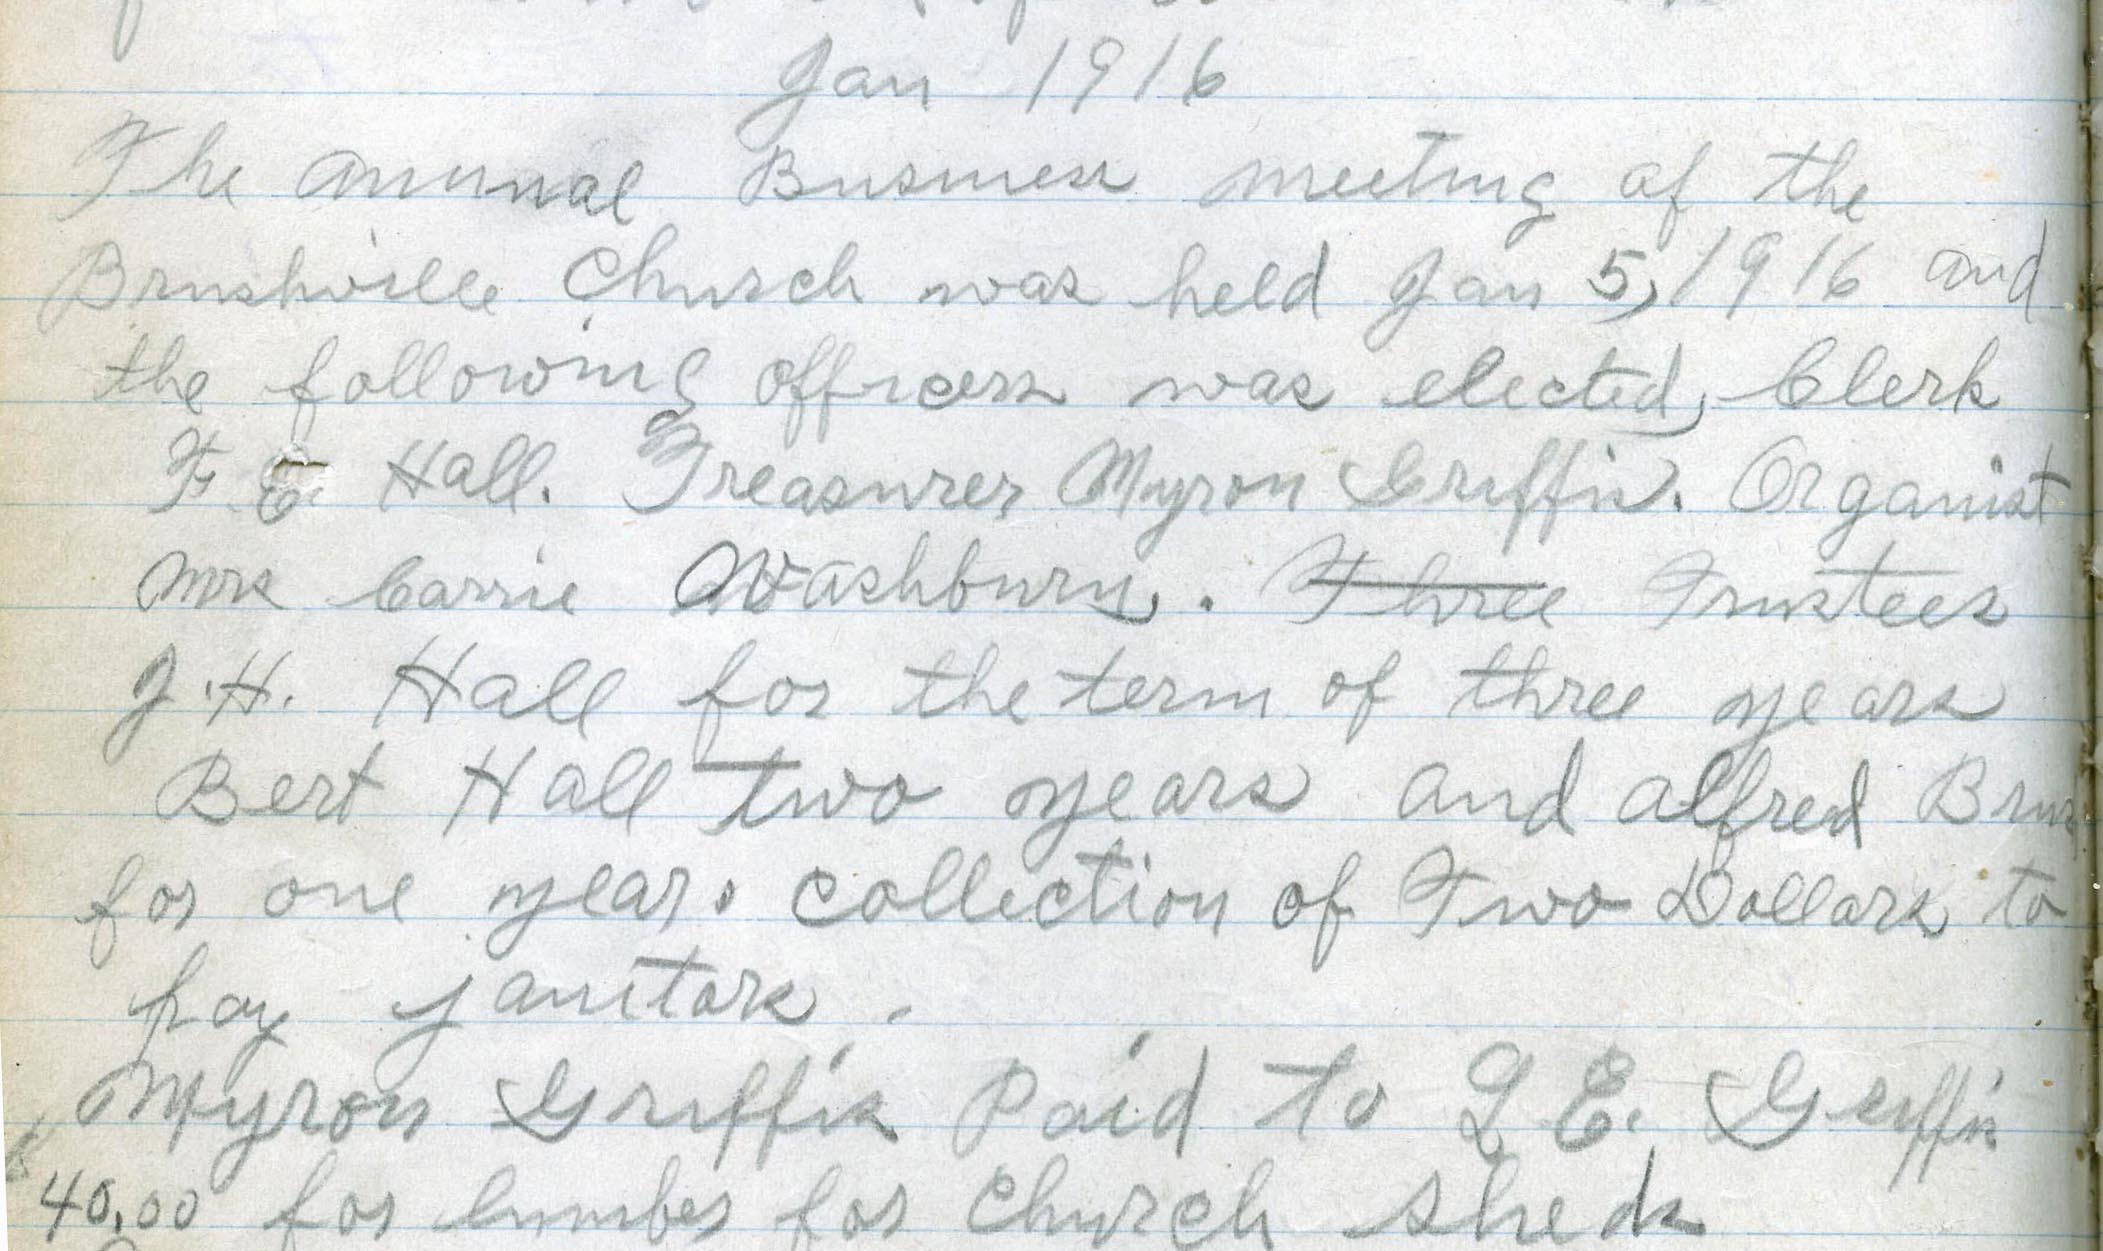 Jan 1916
The annunal Business meeting of the
Brushville Church was held Jan 5, 1916 and
the following officers was elected, Clerk
F. E. Hall. Treasurer Myron Griffin. Organist
Mrs Carrie Washburn. Three Trustees
J. H. Hall for the term of three years
Bert Hall two years and Alfred
for one year. Collection of Two Dollars to
pay janitors.
Myron Griffin Paid to L E. Griffin
40.00 for lumber for Church sheds